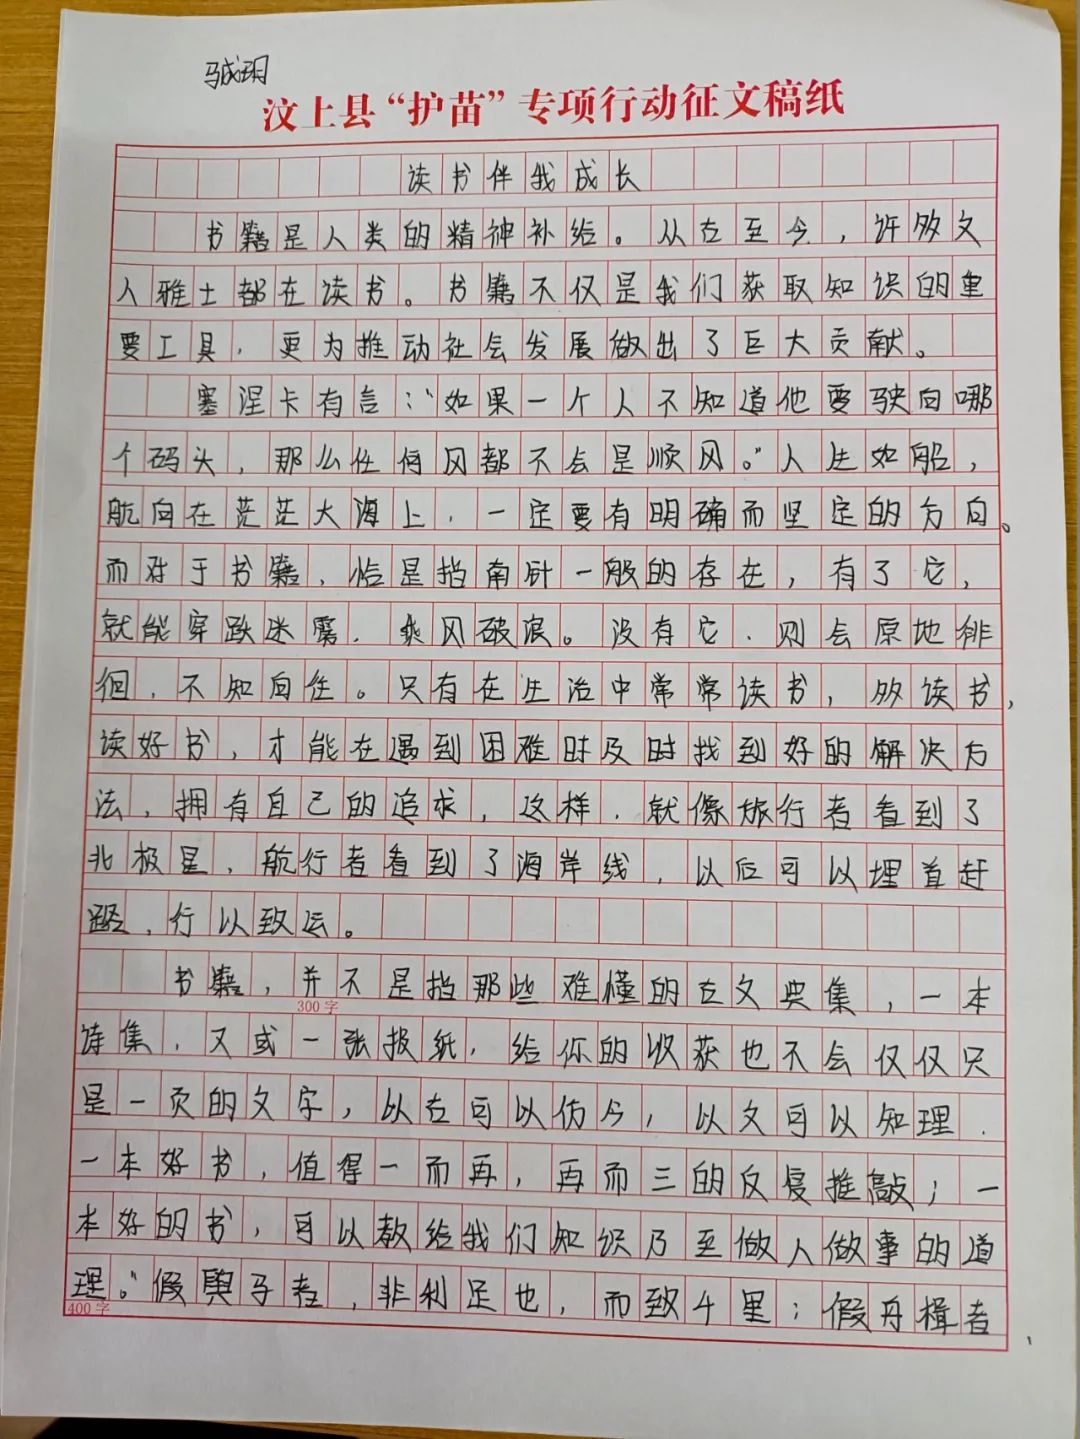 马成玥
汶上县“护苗”专项行动征文稿纸
读书伴我成长
书籍是人类的精神补给。从古至今，许多文
人雅士都在读书。书籍不仅是我们获取知识的重
要工具，更为推动社会发展做出了巨大贡献。
塞涅卡有言：“如果一个人不知道他要驶向哪
个码头，那么任何风都不会是顺风。”人生如船，
航向在茫茫大海上，一定要有明确而坚定的方向。
而对于书籍，恰是指南针一般的存在，有了它，
就能穿跌迷雾，乘风破浪。没有它，则会原地徘
徊，不知向往。只有在生活中常常读书，多读书，
读好书，才能在遇到困难时及时找到好的解决方
法，拥有自己的追求，这样，就像旅行者看到了
北极星，航行者看到了海岸线，以后可以埋首赶
路，行以致远。
书籍，并不是指那些难懂的古文典集，一本
300字
诗集，又或一张报纸，给你的收获也不会仅仅只
是一页的文字，以古可以仿今，以文可以知理．
一本好书，值得一而再，再而三的反复推敲；一
本好的书，可以教给我们知识乃至做人做事的道
理。“假舆马者，非利足也，而致千里；假舟楫者，
400字